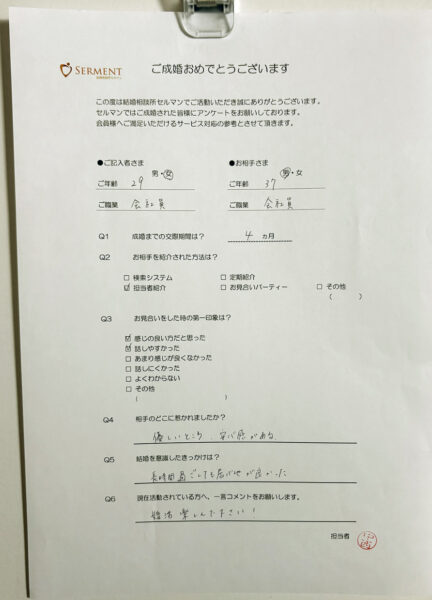 SERMENT
ご成婚おめでとうございます
この度は結婚相談所セルマンでご活動いただき誠にありがとうございます。
セルマンではご成婚された皆様にアンケートをお願いしております。
会員様へご満足いただけるサービス対応の参考とさせて頂きます。
●ご記入者さま ●お相手さま
男・女 男・女
ご年齢 29 ご年齢 37
ご職業 会社員 ご職業 会社員
Q1 成婚までの交際期間は? 4 ヵ月
Q2 お相手を紹介された方法は?
□ 検索システム □ 定期紹介
☑ 担当者紹介 □ お見合いパーティー □ その他
( )
Q3 お見合いをした時の第一印象は?
☑ 感じの良い方だと思った
☑ 話しやすかった
□ あまり感じが良くなかった
□ 話しにくかった
□ よくわからない
□ その他
( )
Q4 相手のどこに惹かれましたか?
優しいところ、安心感がある
Q5 結婚を意識したきっかけは?
長時間過ごしても居心地が良かった
Q6 現在活動されている方へ、一言コメントをお願いします。
婚活楽しんでください!
担当者